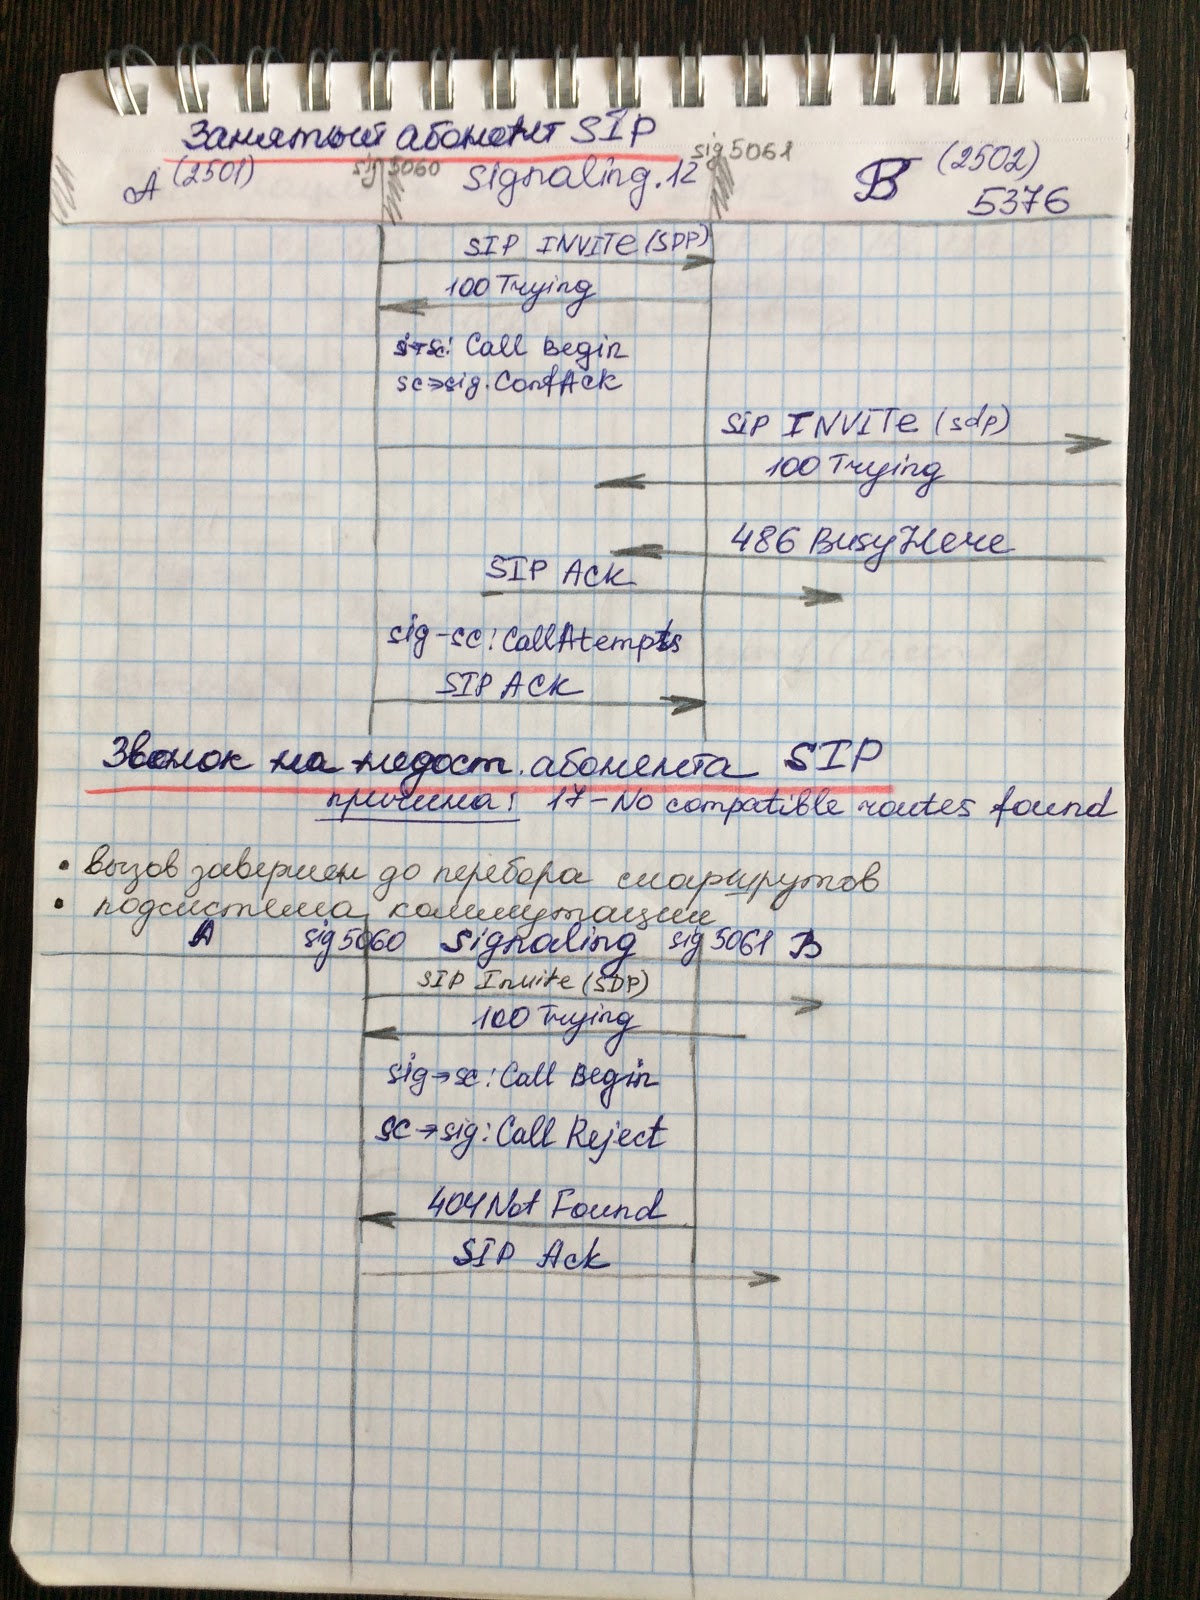 Занятый абонент SIP
A (2501) sig 5060 signaling.12 sig 5061 B (2502)
5376
SIP INVITE (SDP)
100 Trying
Call Begin
sc→sig. ConfAck
SIP INVITE (sdp)
100 Trying
486 Busy Here
SIP ACK
sig-sc: CallAtempts
SIP ACK
Звонок на недост. абонента SIP
причина: 17-No compatible routes found
• вызов завершен до перебора маршрутов
• подсистема коммутации
A sig 5060 signaling sig 5061 B
SIP Invite (SDP)
100 Trying
sig→sc: Call Begin
sc→sig: Call Reject
404 Not Found
SIP Ack